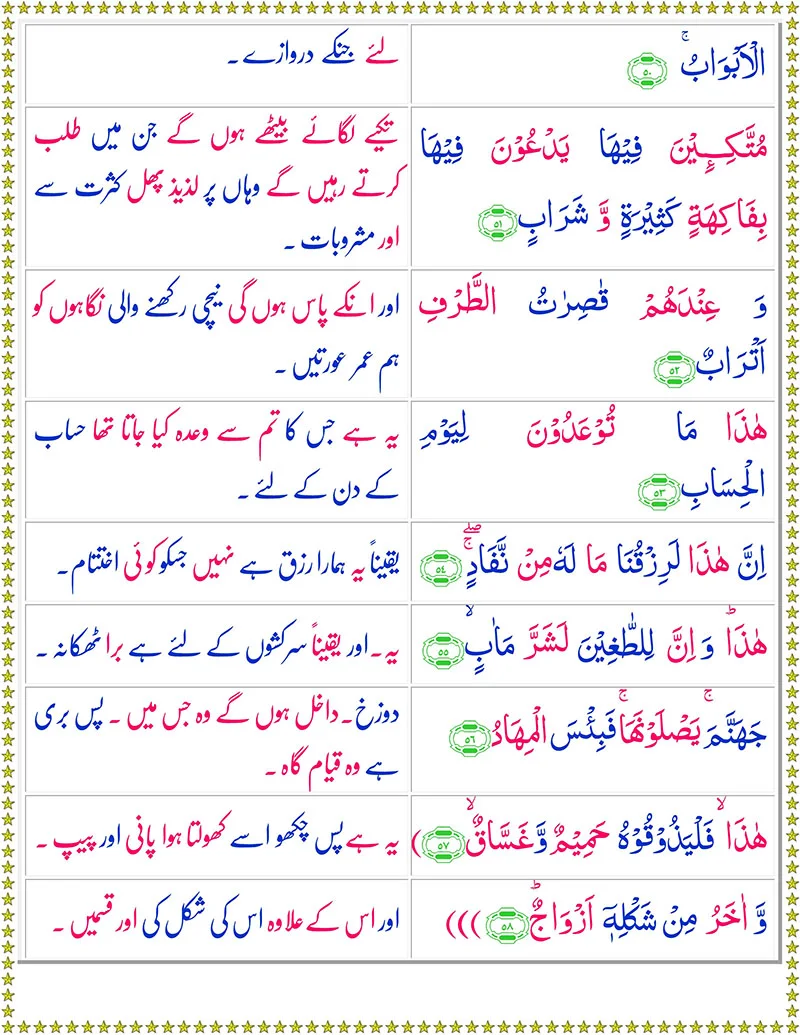 الْاَبْوَابُ ۚ ﴿۵۰﴾
لئے جنکے دروازے۔
مُتَّكِـِٕيْنَ فِيْهَا يَدْعُوْنَ فِيْهَا
بِفَاكِهَةٍ كَثِيْرَةٍ وَّ شَرَابٍ ﴿۵۱﴾
تکیے لگائے بیٹھے ہوں گے جن میں طلب
کرتے رہیں گے وہاں پر لذیذ پھل کثرت سے
اور مشروبات ۔
وَ عِنْدَهُمْ قٰصِرٰتُ الطَّرْفِ
اَتْرَابٌ ﴿۵۲﴾
اور انکے پاس ہوں گی نیچی رکھنے والی نگاہوں کو
ہم عمر عورتیں ۔
هٰذَا مَا تُوْعَدُوْنَ لِيَوْمِ
الْحِسَابِ ﴿۵۳﴾
یہ ہے جس کا تم سے وعدہ کیا جاتا تھا حساب
کے دن کے لئے ۔
اِنَّ هٰذَا لَرِزْقُنَا مَا لَهٗ مِنْ نَّفَادٍ ۖۚ ﴿۵۴﴾
یقیناً یہ ہمارا رزق ہے نہیں جسکو کوئی اختتام۔
هٰذَا ؕ وَ اِنَّ لِلطّٰغِيْنَ لَشَرَّ مَاٰبٍ ۙ ﴿۵۵﴾
یہ۔اور یقیناً سرکشوں کے لئے ہے برا ٹھکانہ ۔
جَهَنَّمَ ۚ يَصْلَوْنَهَا ۚ فَبِئْسَ الْمِهَادُ ﴿۵۶﴾
دوزخ۔داخل ہوں گے وہ جس میں ۔ پس بری
ہے وہ قیام گاہ ۔
هٰذَا ۙ فَلْيَذُوْقُوْهُ حَمِيْمٌ وَّ غَسَّاقٌ ۙ ﴿۵۷﴾ )
یہ ہے پس چکھو اسے کھولتا ہوا پانی اور پیپ ۔
وَّ اٰخَرُ مِنْ شَكْلِهٖۤ اَزْوَاجٌ ؕ ﴿۵۸﴾ )))
اور اس کے علاوہ اس کی شکل کی اور قسمیں ۔